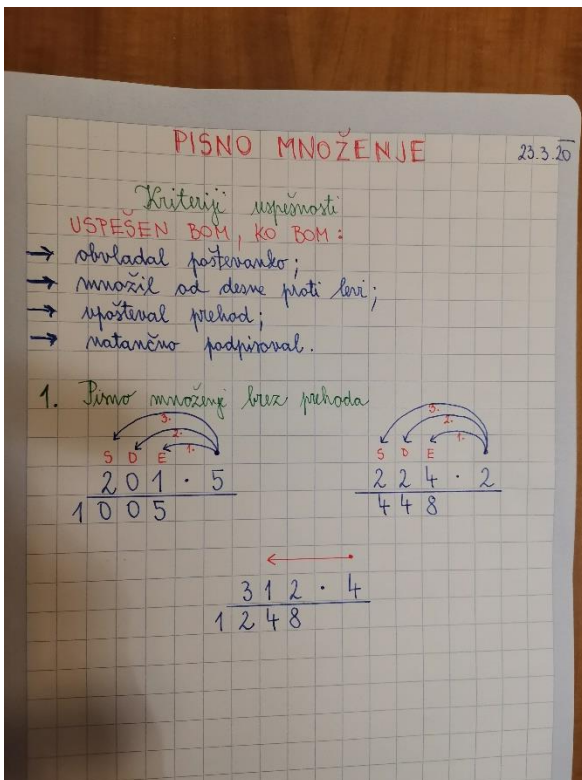 PISNO MNOŽENJE 23.3.20
Kriteriji uspešnosti
USPEŠEN BOM, KO BOM:
→ obvladal poštevanko;
→ množil od desne proti levi;
→ upošteval prehod;
→ natančno podpisoval.
1. Pisno množenje brez prehoda
3. 3.
2. 2.
1. 1.
S D E S D E
201 · 5 224 · 2
1005 448
312 · 4
1248